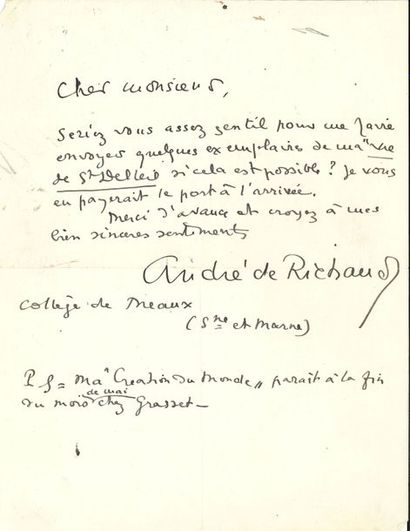 Cher monsieur,
Seriez vous assez gentil pour me faire
envoyer quelques exemplaires de ma "vie
de St Delteil si cela est possible ? Je vous
en payerait le port à l'arrivée.
Merci d'avance et croyez à mes
bien sincères sentiments
André de Richaud
Collège de Meaux
(Sne et Marne)
PS = Ma "Création du Monde" parait à la fin
de mai
du mois chez Grasset _